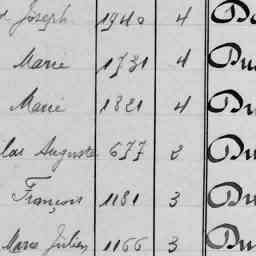 Joseph 1940 4
Marie 1731 4
Marie 1821 4
Auguste 677 2 Du
François 1181 3 Du
Marie Julien 1166 3 Du